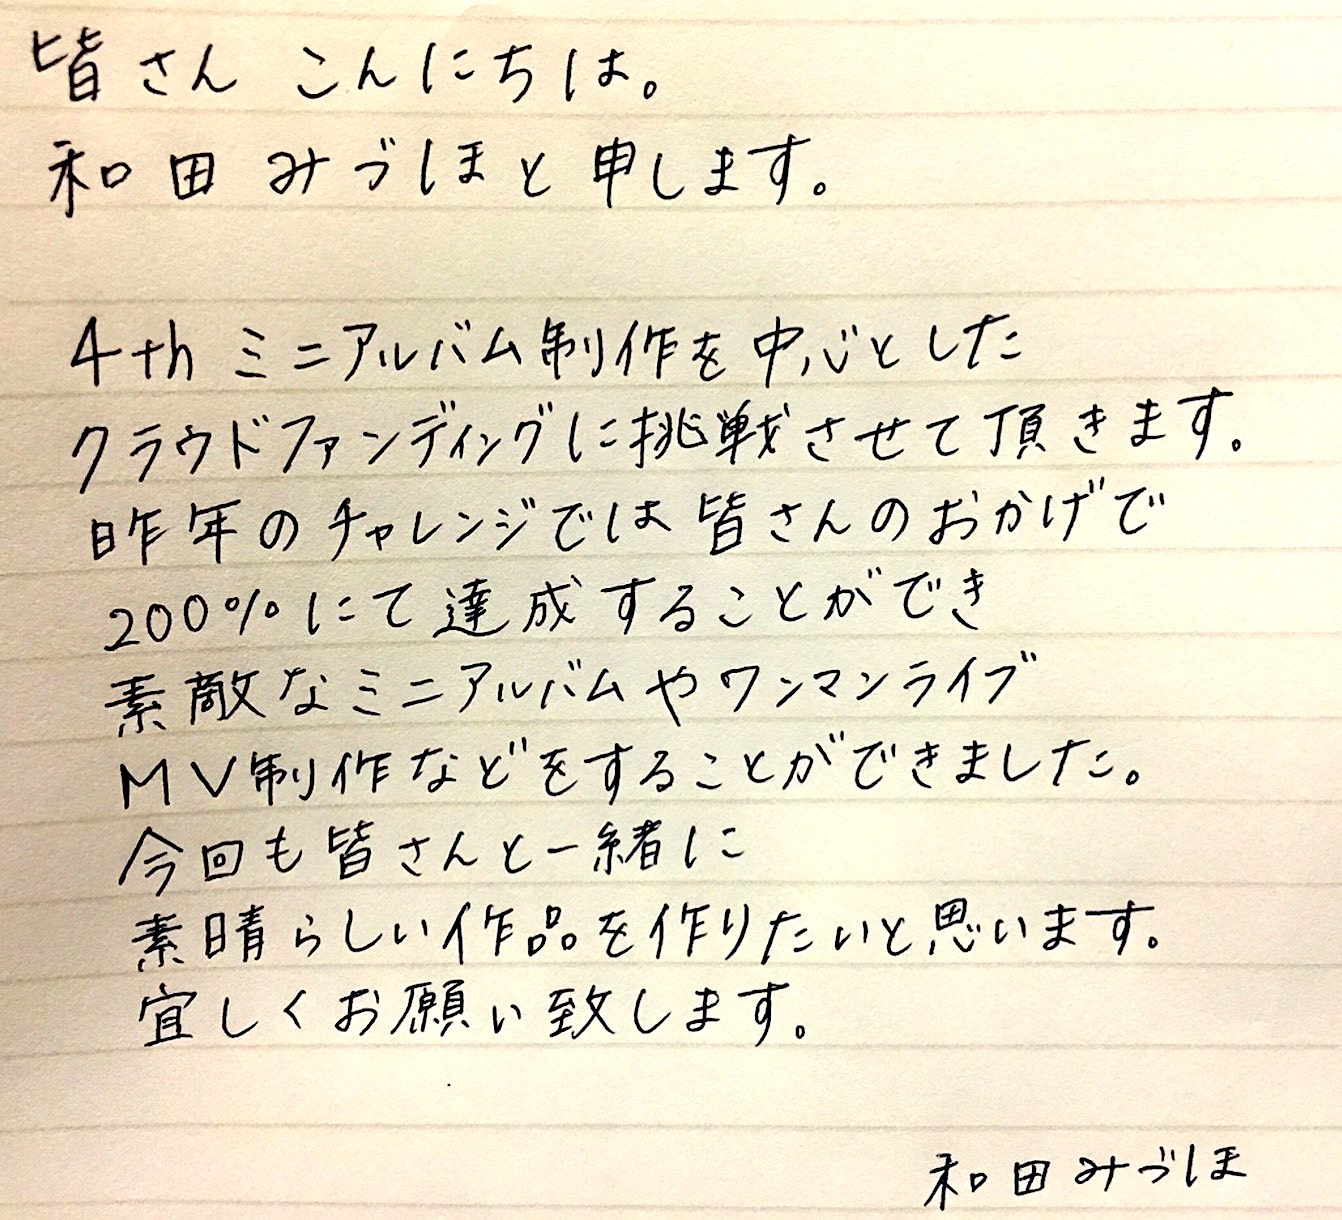 皆さん こんにちは。
和田 みづほと申します。
4th ミニアルバム制作を中心とした
クラウドファンディングに挑戦させて頂きます。
昨年のチャレンジでは皆さんのおかげで
200%にて達成することができ
素敵なミニアルバムやワンマンライブ
MV制作などをすることができました。
今回も皆さんと一緒に
素晴らしい作品を作りたいと思います。
宜しくお願い致します。
和田みづほ